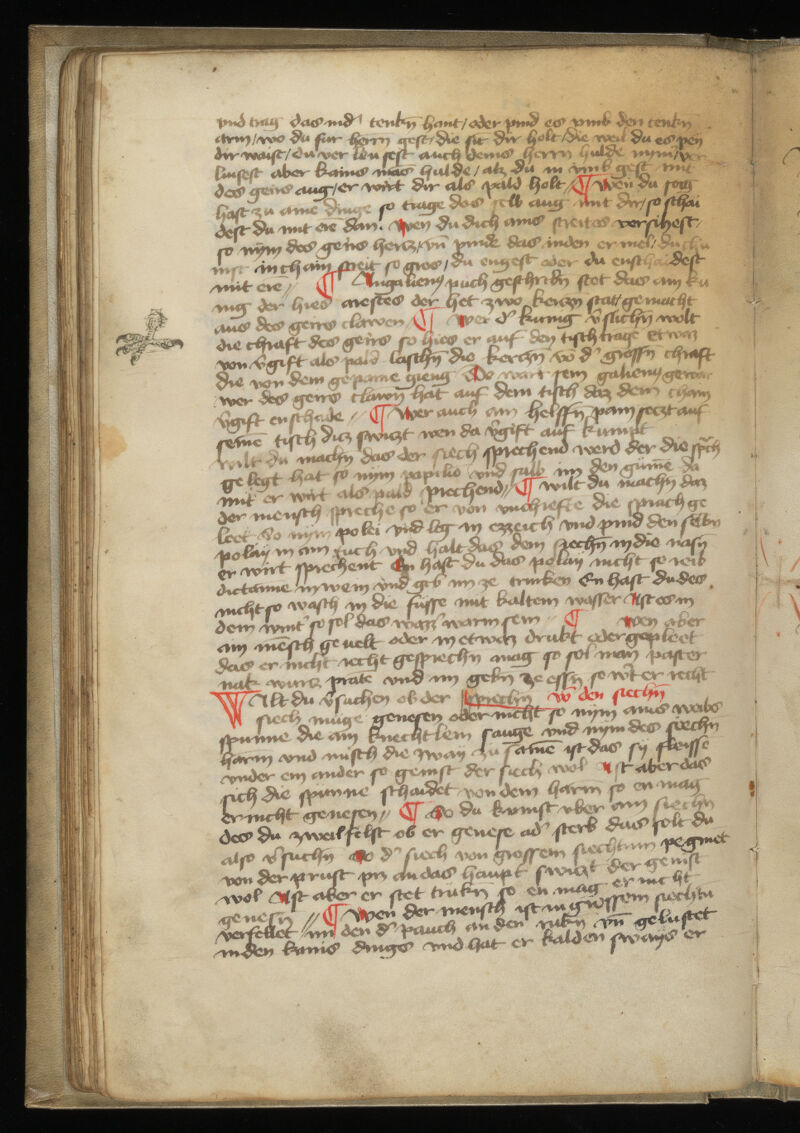 vnd trag das in d' tenkn hant / oder pind es vmb den tenkn
arm / wo du fur herrn gest / die sit dir holt / die weil du es pey
dir waist / du ver leusest auch deins herrn hulde nym / ver
liusest aber kains mās hulde / alz du in vmb gest mit
des geirs aug / er wirt dir als pald holt / ¶ Wen du sorg
hast zu aine dinge so trage das selb aug mit dir / so schai
dest du mit ere dan. Wen du dich ains streites versihest /
so nym des geirs hercz / vn̄ pinde das in den ermel / du
in chain streit so gros / du en oder du enschaidest
mit ere // ¶ In galieny puch geschribn stet das ain ku
nig der hies arestes der het zwo kerczn stat gemacht
aus des geirs clawen ¶ Wer d' kunig v'suchn wolt
die chraft des geirs so hies er auf den tisch trage etwaz
von v'gift als pald laschn die kerczn vō d' grossn chraft
die von dem gepaine gieng Do wart sein galieny gewar
wer des geirs clawn hat auf dem tisch daz dem chain
v'gift enschade // ¶ Wer auch ain helffn pain seczt auf
seine tisch diz swiczt wen da v'gift auf kumpt
wilt du machn das der siech sprechend werd der die sprach
ge legt hat so nym papilio vnd salb im den gume da
mit er wirt als pald sprechend // ¶ wilt du machn daz
der mensch spreche so er von vnchrefte die sprach ge
leet So nym polei vnd leg in ezzeich vnd pind den selbn
polay in ain tuch vnd halt das dem siechn in die nasn
er wirt sprechent En hast du das polay nicht so reib
dictamne in wein vnd gib im ze trinken En hast du des
nicht so wasch in die fusse mit kaltem wasser Ist es in
dem wint' so sol das wazz' warm sein // ¶ Wen aber
ain mēsch ge velt oder in etwaz drukt oder gepleet
das er nicht recht gesprechn mag so sol man paster
nak wurz prate vnd im gebn ze essn so wirt er recht
Wilt du v'suchen ob der sprechn vō den siechn
siech muge genesen oder nicht so nym ains weibs
spunne die ain knechtlein sauge vnd nym des siechn
harm vnd misch die zway zu saine ist das sy fleisse
vnder ein ander so genist der siech wol Ist aber das
sich die spunne schaidet von dem harm so en mag
er nicht genesen // ¶ So du kumst vber ain siechn
des du zweilfelst ob er genese ad' sterb das solt du
also v'suchn So d' siech von grossem siechtum peginet
von der prust pis an das haupt swiczt der genist
wol Ist aber er stet trukn so en mag er nicht
genesn // ¶ Wen der mensch ist in grossem siechtu
verfellet im den d' pauch an den rukn vn̄ gelustet
in den kains dings vnd hat er kalden swaijs er